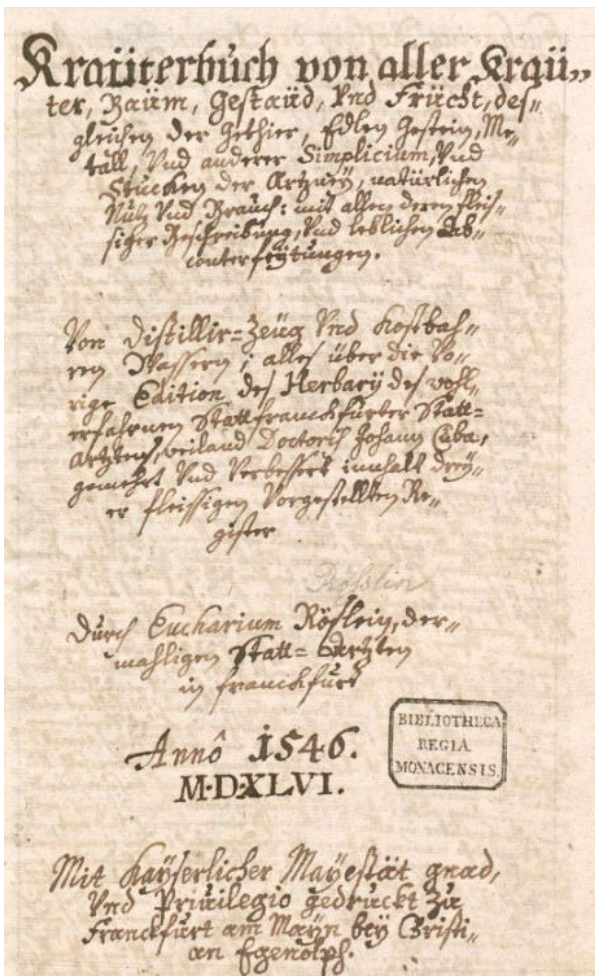 Kraüterbuch von aller Kraü„
ter, Baüm, Gestaüd, Vnd Frücht, des„
gleichen der Gethier, Edlen Gestein, Me„
tall, Vnd anderer Simplicium, Vnd
Stucken der Artzney, natürlichen
Nutz Vnd Brauch: mit allen deren fleis„
siger Beschreibung, Vnd leblichen Ab„
conterfeÿtungen.
Von Distillir=Zeüg Vnd Kostbah„
ren Wassern; alles über die Vo„
rige Edition des Herbarÿ des wohl„
erfahrnen Statt franckfürter Statt=
Artzten, weiland Doctoris Johann Cuba,
gemehrt Vnd Verbessert innhalt dreÿ„
er fleissigen Vorgestellten Re„
gister
Rösslin
Durch Eucharium Röslein, der„
mahligen Statt=Artzten
in franckfurt
Annô 1546.
M·D·XLVI.
BIBLIOTHECA
REGIA
MONACENSIS.
Mit Kaÿserlicher Mayestät gnad,
Vnd Priuilegio gedruckt Zu
Franckfurt am Maÿn beÿ Christi„
an Egenolph.